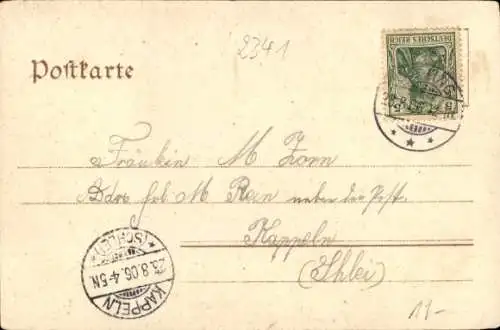 2341
DEUTSCHES REICH
Postkarte
Fräulein M Zorn
Adr. frl. M Rein neben der Post.
Kappeln
(Schlei)
(SCHLEI)
23.8.06.4-5N.
KAPPELN
11-